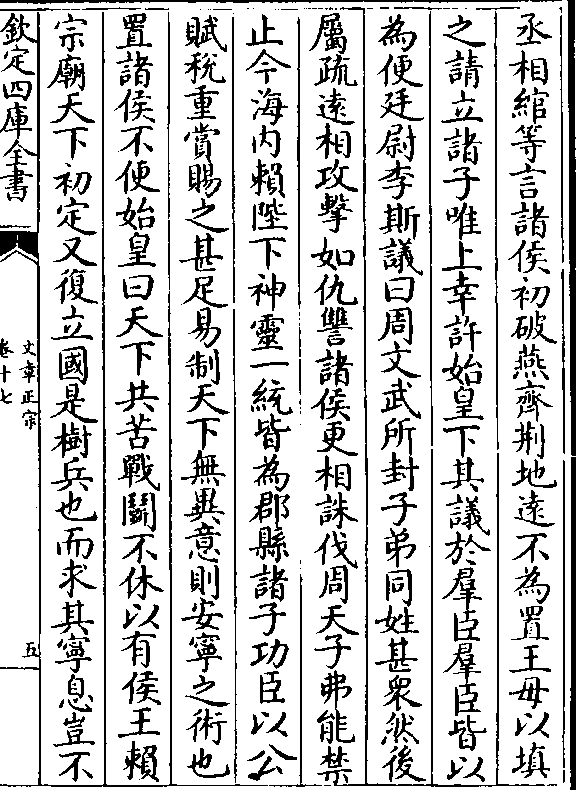 丞相綰等言諸侯初破燕齊荆地遠不為置王毋以填
之請立諸子唯上幸許始皇下其議於羣臣羣臣皆以
為便廷尉李斯議曰周文武所封子弟同姓甚衆然後
屬疏遠相攻擊如仇讐諸侯更相誅伐周天子弗能禁
止今海内賴陛下神靈一統皆為郡縣諸子功臣以公
賦稅重賞賜之甚足易制天下無異意則安寧之術也
置諸侯不便始皇曰天下共苦戰鬭不休以有侯王賴
宗廟天下初定又復立國是樹兵也而求其寧息豈不
欽定四庫全書
文章正宗
卷十七
五